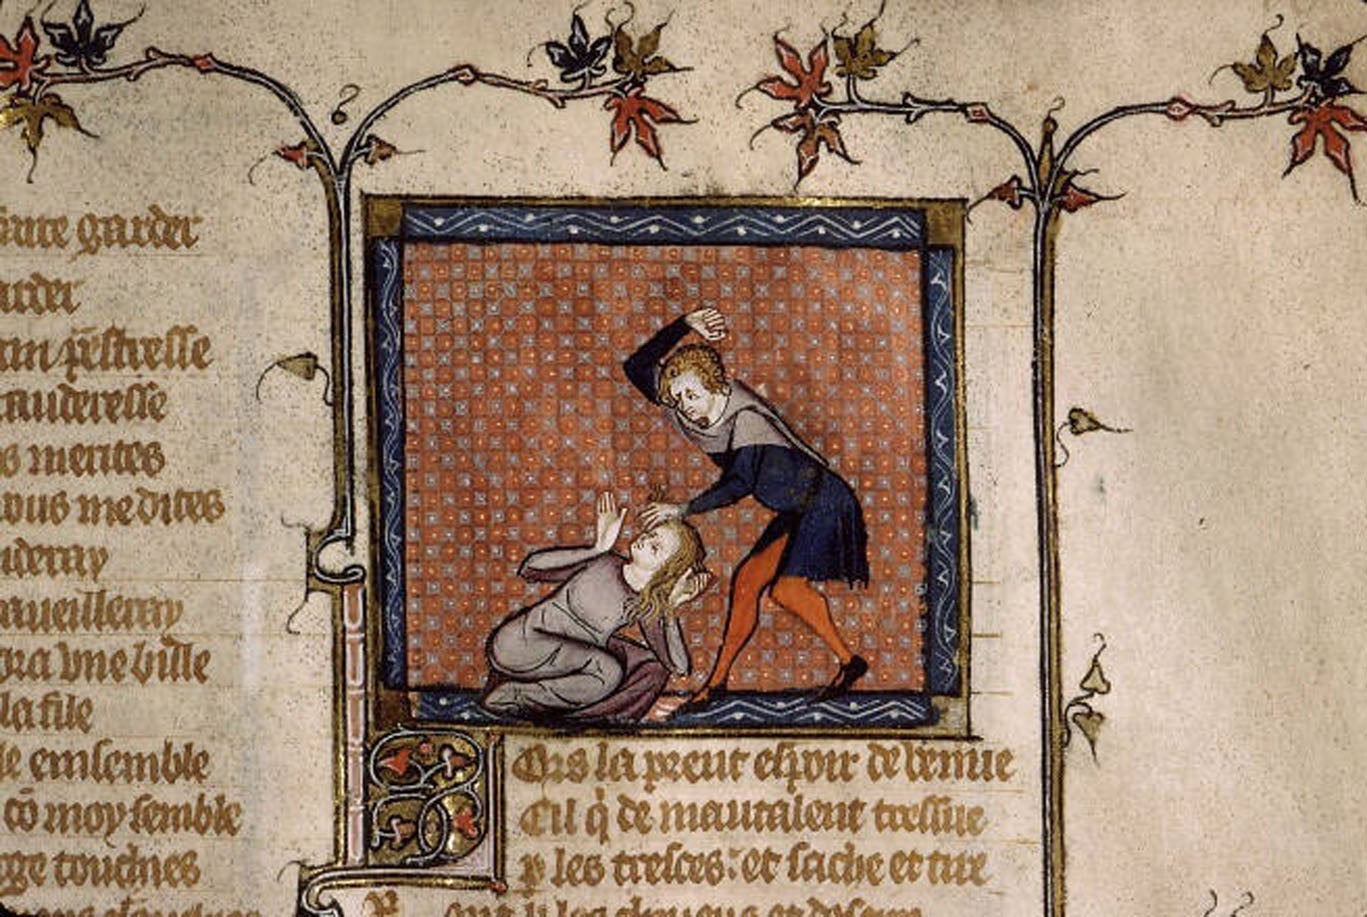 garder
arder
prestresse
s merites
vous me dites
nderay
mueilleray
ora vne bulle
la file
le emsemble
cō moy semble
ge touches
Ors la prent espoir de venue
Cil q̇ de mautalent tressue
p les tresces: et sache et tire